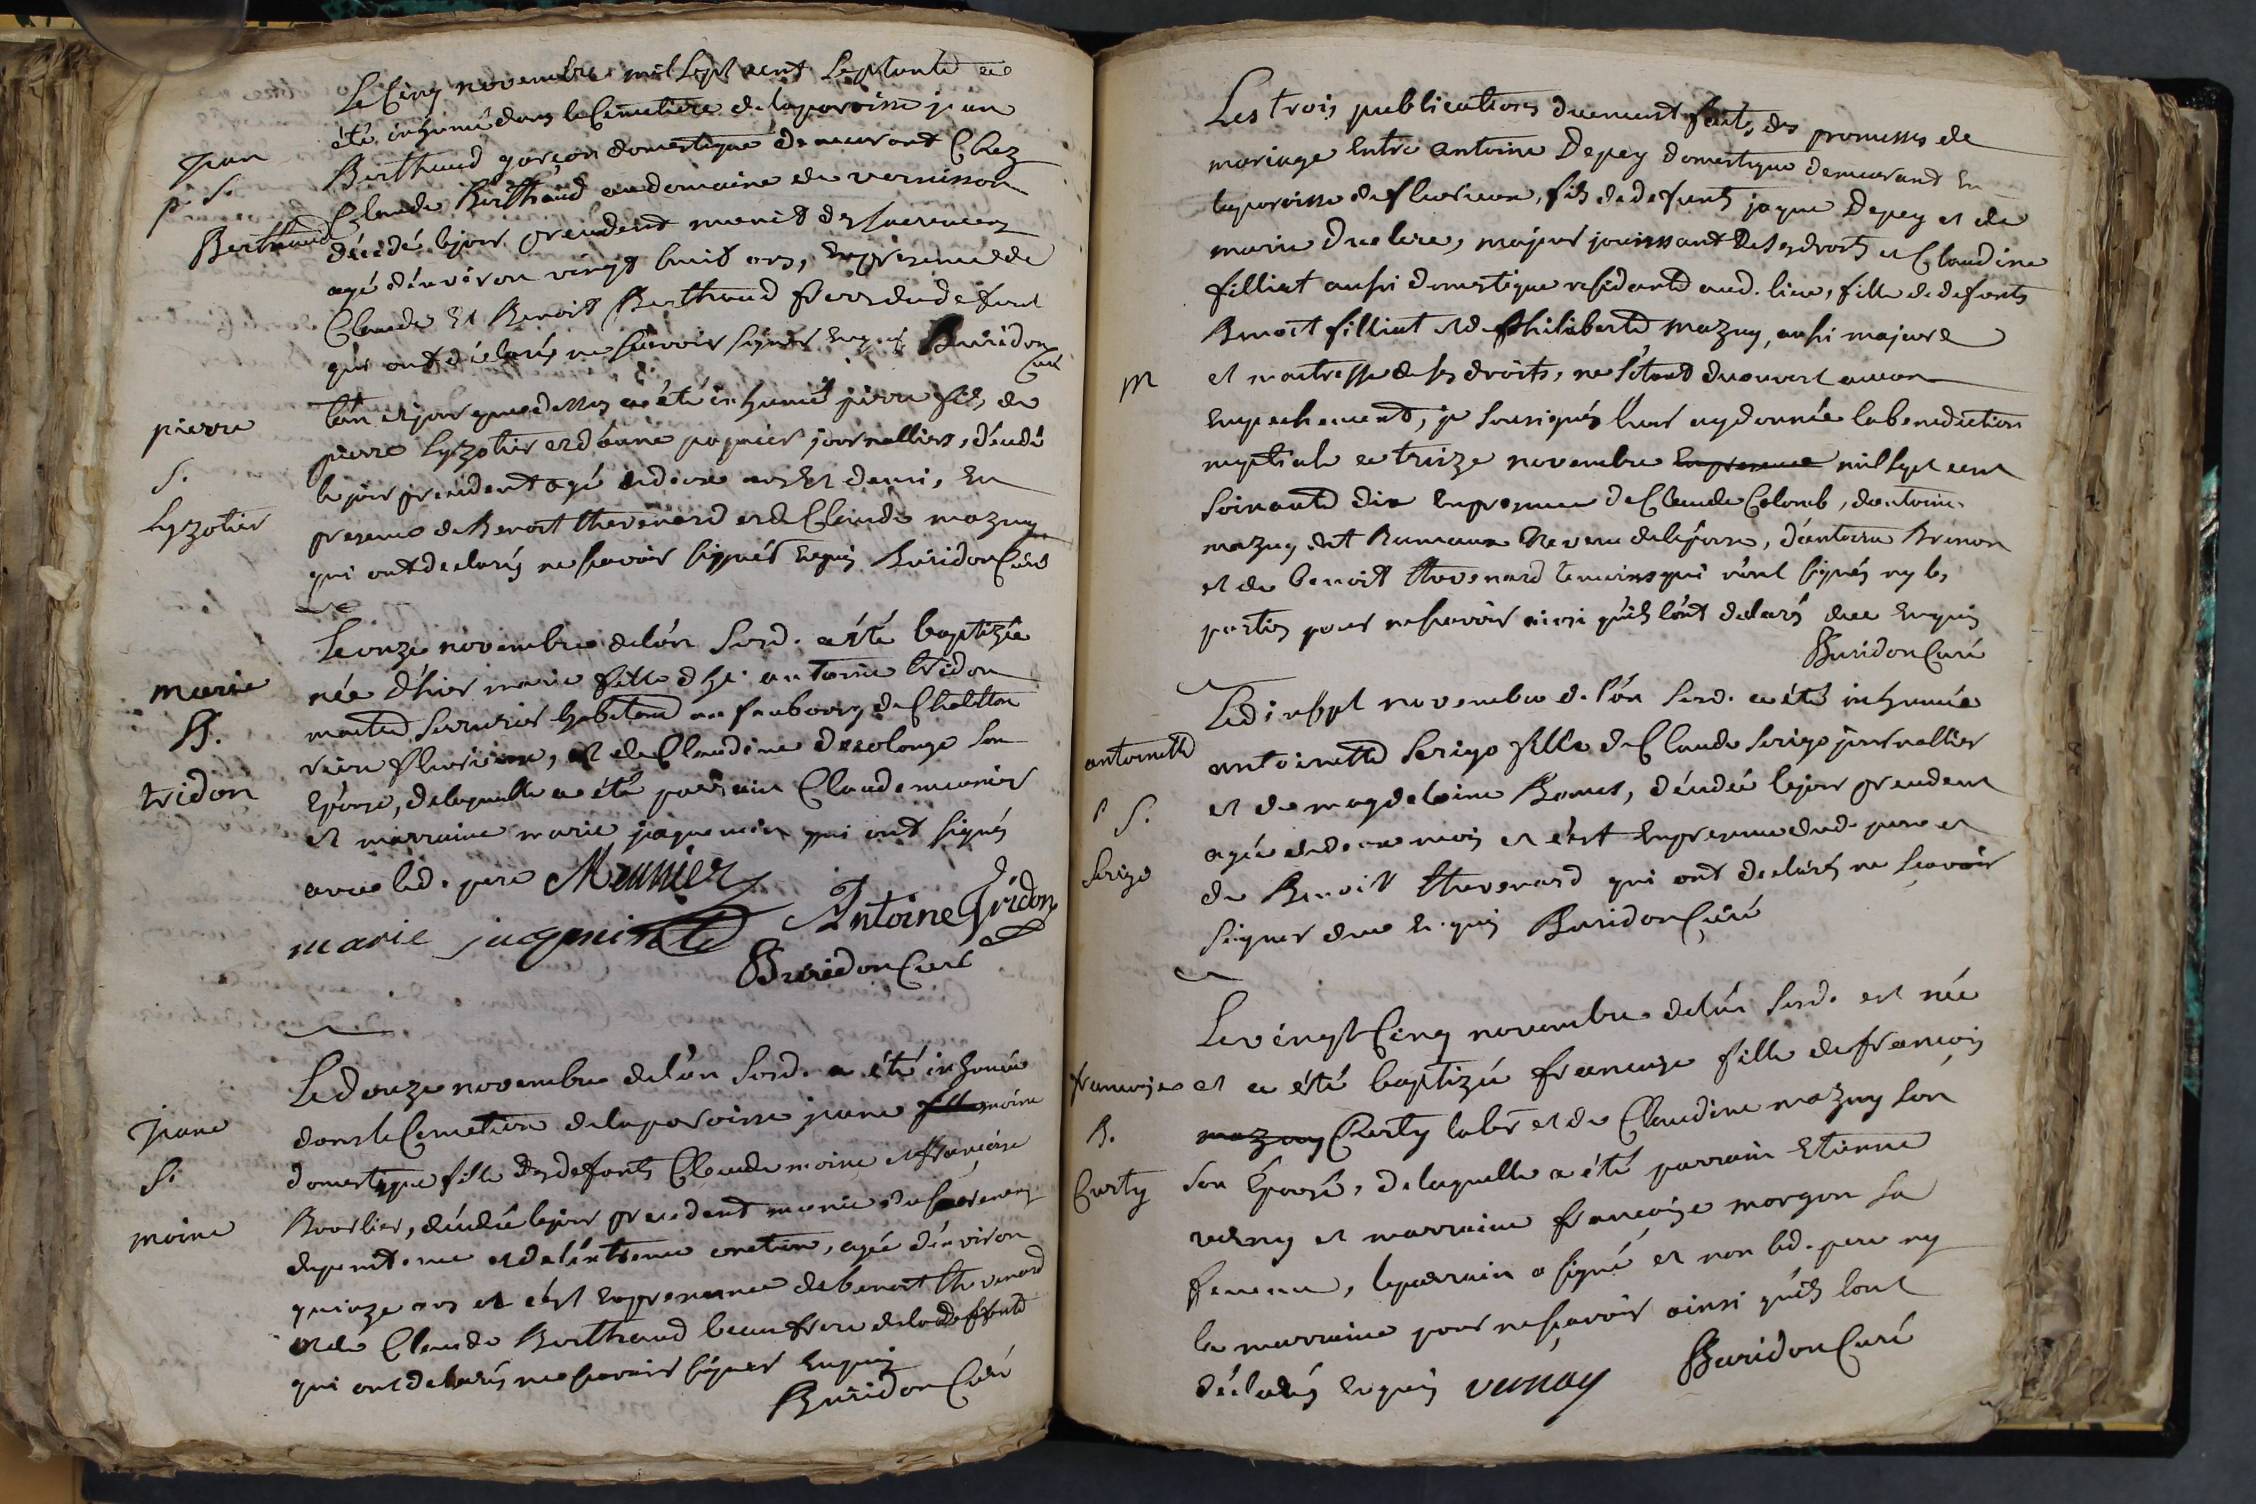 Le Cinq novembre mil sept cent septante a
été inhumé dans le Cemetiere de la paroisse jean
Jean
Berthaud garçon domestique demeurant Chez
p. S.
Claude Berthaud au domaine de vernisson
Berthaud
décédé le jour précédent munit des sacremens
agé d'environ vingt huit ans, en presence de
Claude et Benoit Berthaud freres du defunt
qui ont déclarés ne sçavoir signer Buridon
Curé
l'an et jour que dessus a été inhumé pierre fils de
pierre
pierre Lyzotier et d'anne journalliers, décédé
S.
le jour precedent agé et demi, en
Lyzotier
presence de Benoit thevenard et de Claude mazuy
qui ont declarés ne sçavoir signer Buridon Curé
Le onze novembre de l'an susd. a été baptizée
marie
née d'hier marie fille d'h. antoine tridon
B.
maitre serrurier habitant au faubourg de Chatillon
tridon
riere fleurieux, et de Claudine son
Epouse, de laquelle a été parrain Claude meunier
et marraine marie jaquemin qui ont signés
avec led. pere Meunier
Antoine Tridon
marie
Buridon Curé
Le douze novembre de l'an susd. a été inhumée
Jeane
dans le Cemetiere de la paroisse jeane moine
S.
domestique fille des defunts Claude moine et françoise
moine
décédée le jour precedent munie des sacremens
de penitence et de l'extreme onction, agée d'environ
quinze ans et c'est en presence de benoit thevenard
et de Claude Berthaud beaufrere de la defunte
qui ont declarés ne sçavoir signer
Buridon Curé
Les trois publications duement faites des promesses de
mariage entre antoine Depey domestique demeurant en
la paroisse de fleurieux, fils de defunts jaque Depey et de
marie majeur jouissant de ses droits et Claudine
filliat aussi domestique residante aud. lieu, fille de defunts
Benoit filliat et de philiberte mazuy, aussi majeure
M
et maitresse de ses droits, ne s'étant decouvert aucun
empechement, je soussignés leur ay donnée la benediction
nuptiale ce treize novembre en presence mil sept cent
soixante dix en presence de Claude Colomb, d'antoine
mazuy dit d'antoine
et de benoit thevenard temoins qui n'ont signés ny les
parties pour ne sçavoir ainsi qu'ils l'ont declarés
Buridon Curé
Le dix sept novembre de l'an susd. a été inhumée
antoinette
antoinette Serigo fille de Claude Serigo journallier
S.
et de magdelaine décédée le jour precedent
Serigo
agée de mois et c'est en presence dud. pere et
de Benoit thevenard qui ont declarés ne sçavoir
signer Buridon Curé
Le vingt Cinq novembre de l'an susd. est née
françoise
et a été baptizée françoise fille de françois
B.
mazuy Curty labr et de Claudine mazuy son
Curty
son Epouse, de laquelle a été parrain Etienne
verny et marraine françoise morgon sa
femme, le parrain a signé et non led. pere ny
la marraine pour ne sçavoir ainsi qu'ils l'ont
déclarés Buridon Curé